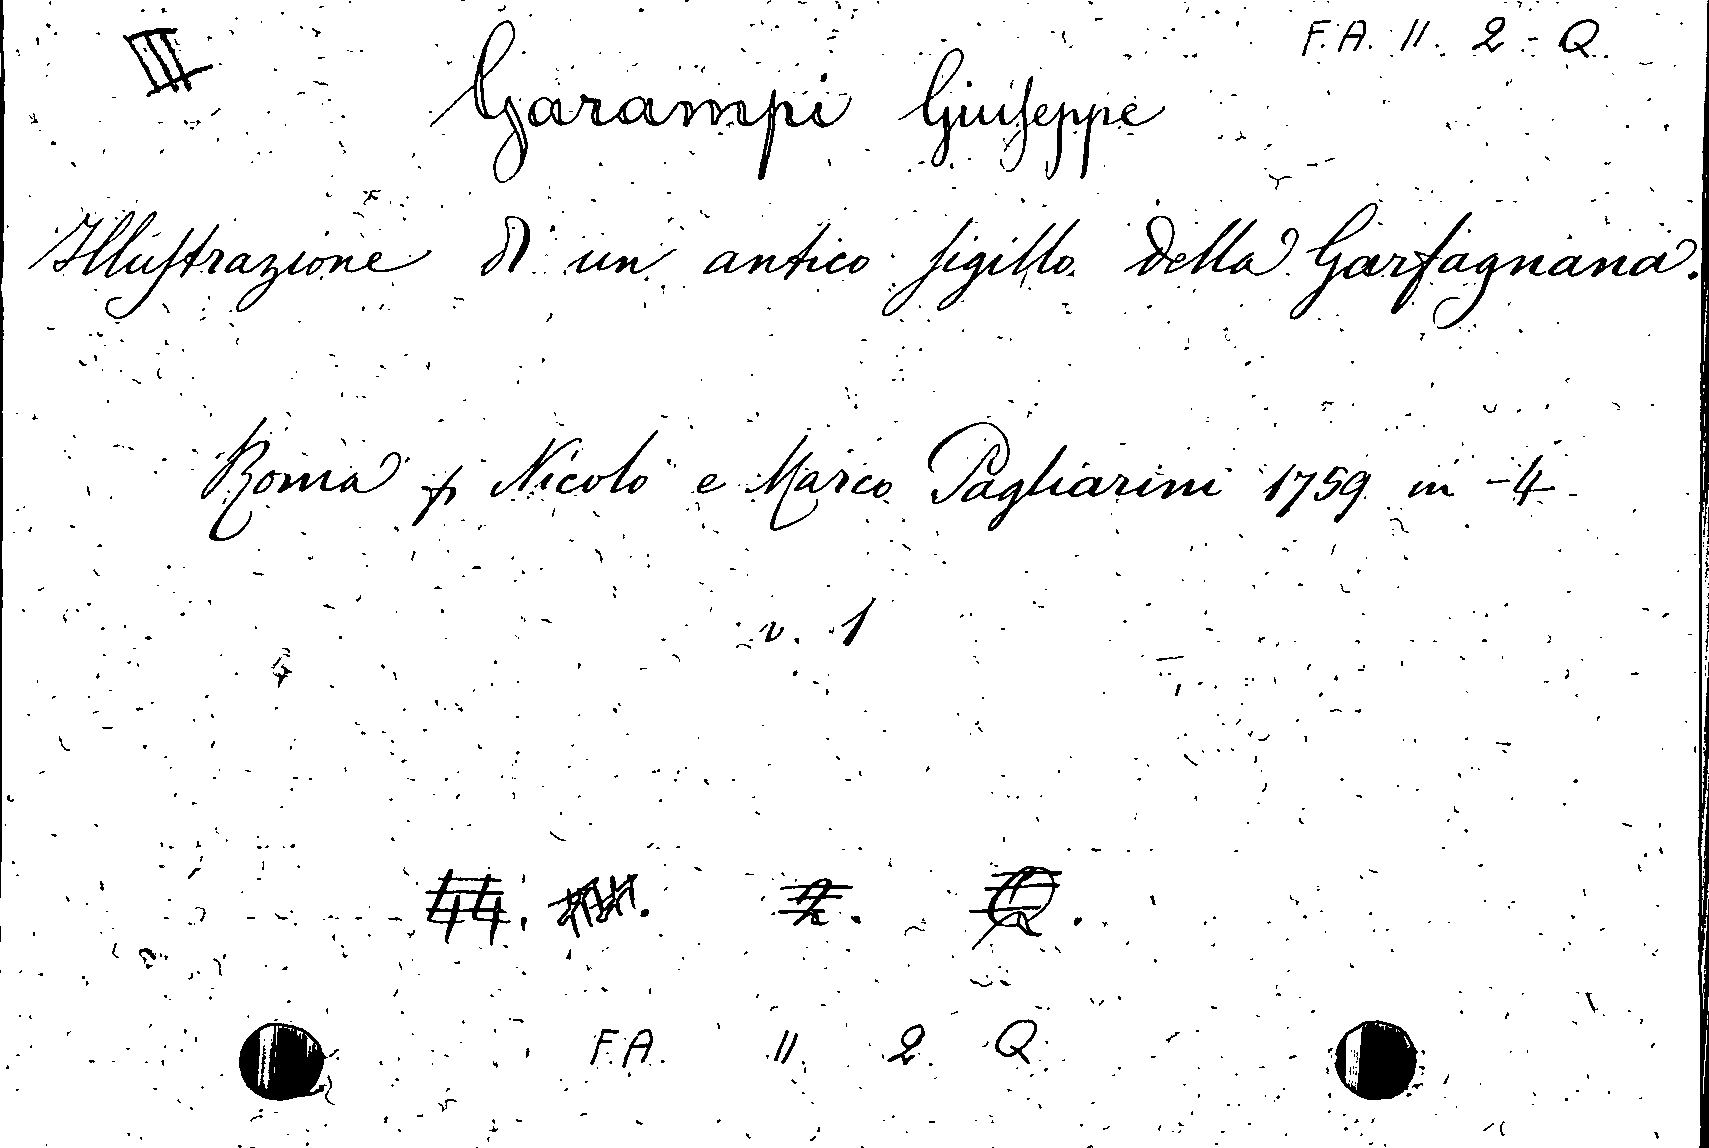 F. A. II. 2 - Q.
Garampi Giuseppe
Illustrazione di un antico sigillo della Garfagnana.
Roma p Nicolò e Marco Pagliarini 1759 in -4
v. 1
F. A. II 2. Q